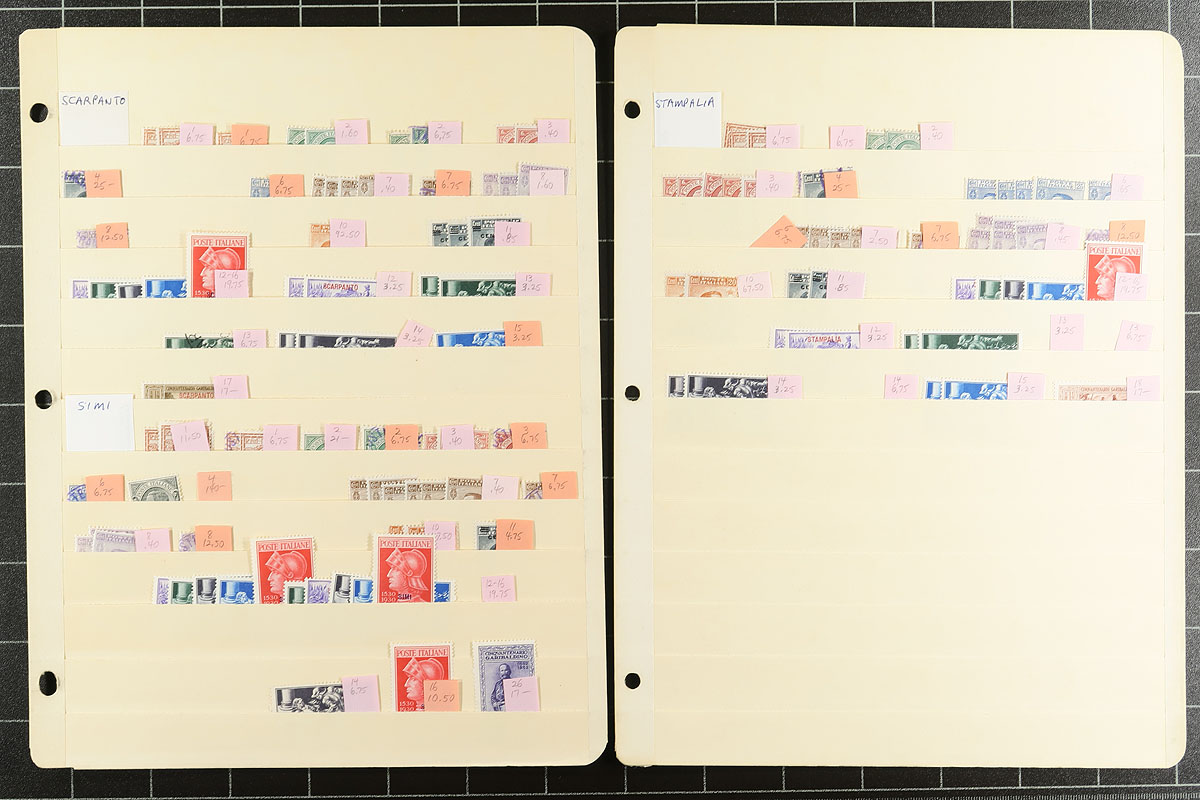 SCARPANTO
1
6.75
1
6.75
2
1.60
2
6.75
3
.40
4
25-
6
6.75
7
.40
7
6.75
8
1.60
8
12.50
POSTE ITALIANE
1530
12-16
19.75
10
92.50
11
.85
SCARPANTO
12
3.25
13
3.25
13
6.75
14
3.25
15
3.25
CINQUANTENARIO GARIBALDINO
SCARPANTO
17
17-
SIMI
1
11.50
1
6.75
2
21-
2
6.75
3
.40
3
6.75
6
6.75
4
7
.40
7
6.75
8
.40
8
12.50
10
11
4.75
POSTE ITALIANE
1530
1930
POSTE ITALIANE
1530
1930
SIMI
12-16
19.75
14
6.75
POSTE ITALIANE
1530
1930
16
10.50
CINQUANTENARIO
GARIBALDINO
26
17-
STAMPALIA
1
6.75
1
6.75
2
.40
3
.40
4
25-
6
7
2.50
7
6.75
8
.45
8
12.50
10
67.50
11
.85
POSTE ITALIANE
12-16
19.75
STAMPALIA
12
3.25
13
3.25
13
6.75
14
3.25
14
6.75
15
3.25
17-